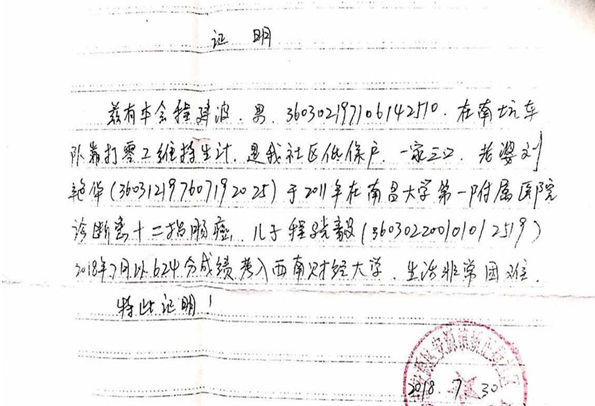 证 明
兹有本会程建波，男，360302197106142570，在南坑车
队靠打零工维持生计，是我社区低保户，一家三口，老婆刘
艳华（360312197607192025）于2011年在南昌大学第一附属医院
诊断患十二指肠癌，儿子程毅（360302200101012519）
2018年7月以624分成绩考入西南财经大学，生活非常困难．
特此证明！
2018．7．30